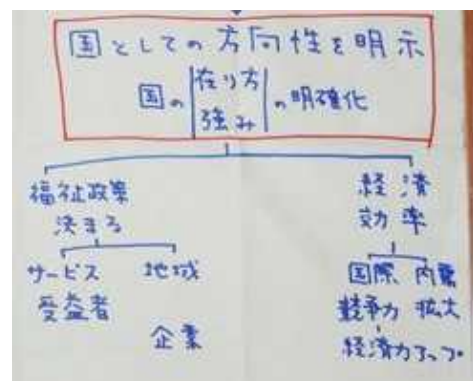 国としての方向性を明示
国の 在り方 強み の明確化
福祉政策
決まる
サービス
受益者
地域
企業
経済
効率
国際
競争力
内需
拡大
経済力アップ